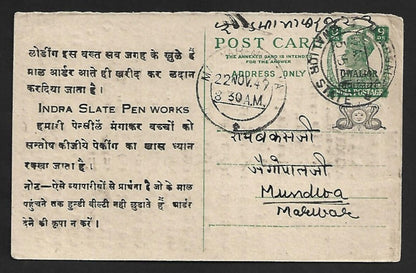 लोडींग इस वख्त सब जगह के खुले हैं
माल आर्डर आते ही खरीद कर लदान
करदिया जाता है।
INDRA SLATE PEN WORKS
हमारी पेन्सीलें मंगाकर बच्चों को
सन्तोष कीजीये पेकींग का खास ध्यान
रक्खा जाता है।
नोट—ऐसे व्यापारीयों से प्रार्थना है जो के माल
पहुंचने तक हुन्डी बील्टी नही छुडाते हैं आर्डर
देने की कृपा न करें।
POST CARD
THE ANNEXED CARD IS INTENDED
FOR THE ANSWER
ADDRESS ONLY
22 NOV. 47
8 30 A.M.
GWALIOR
POSTAGE
Mundwa
Marwar